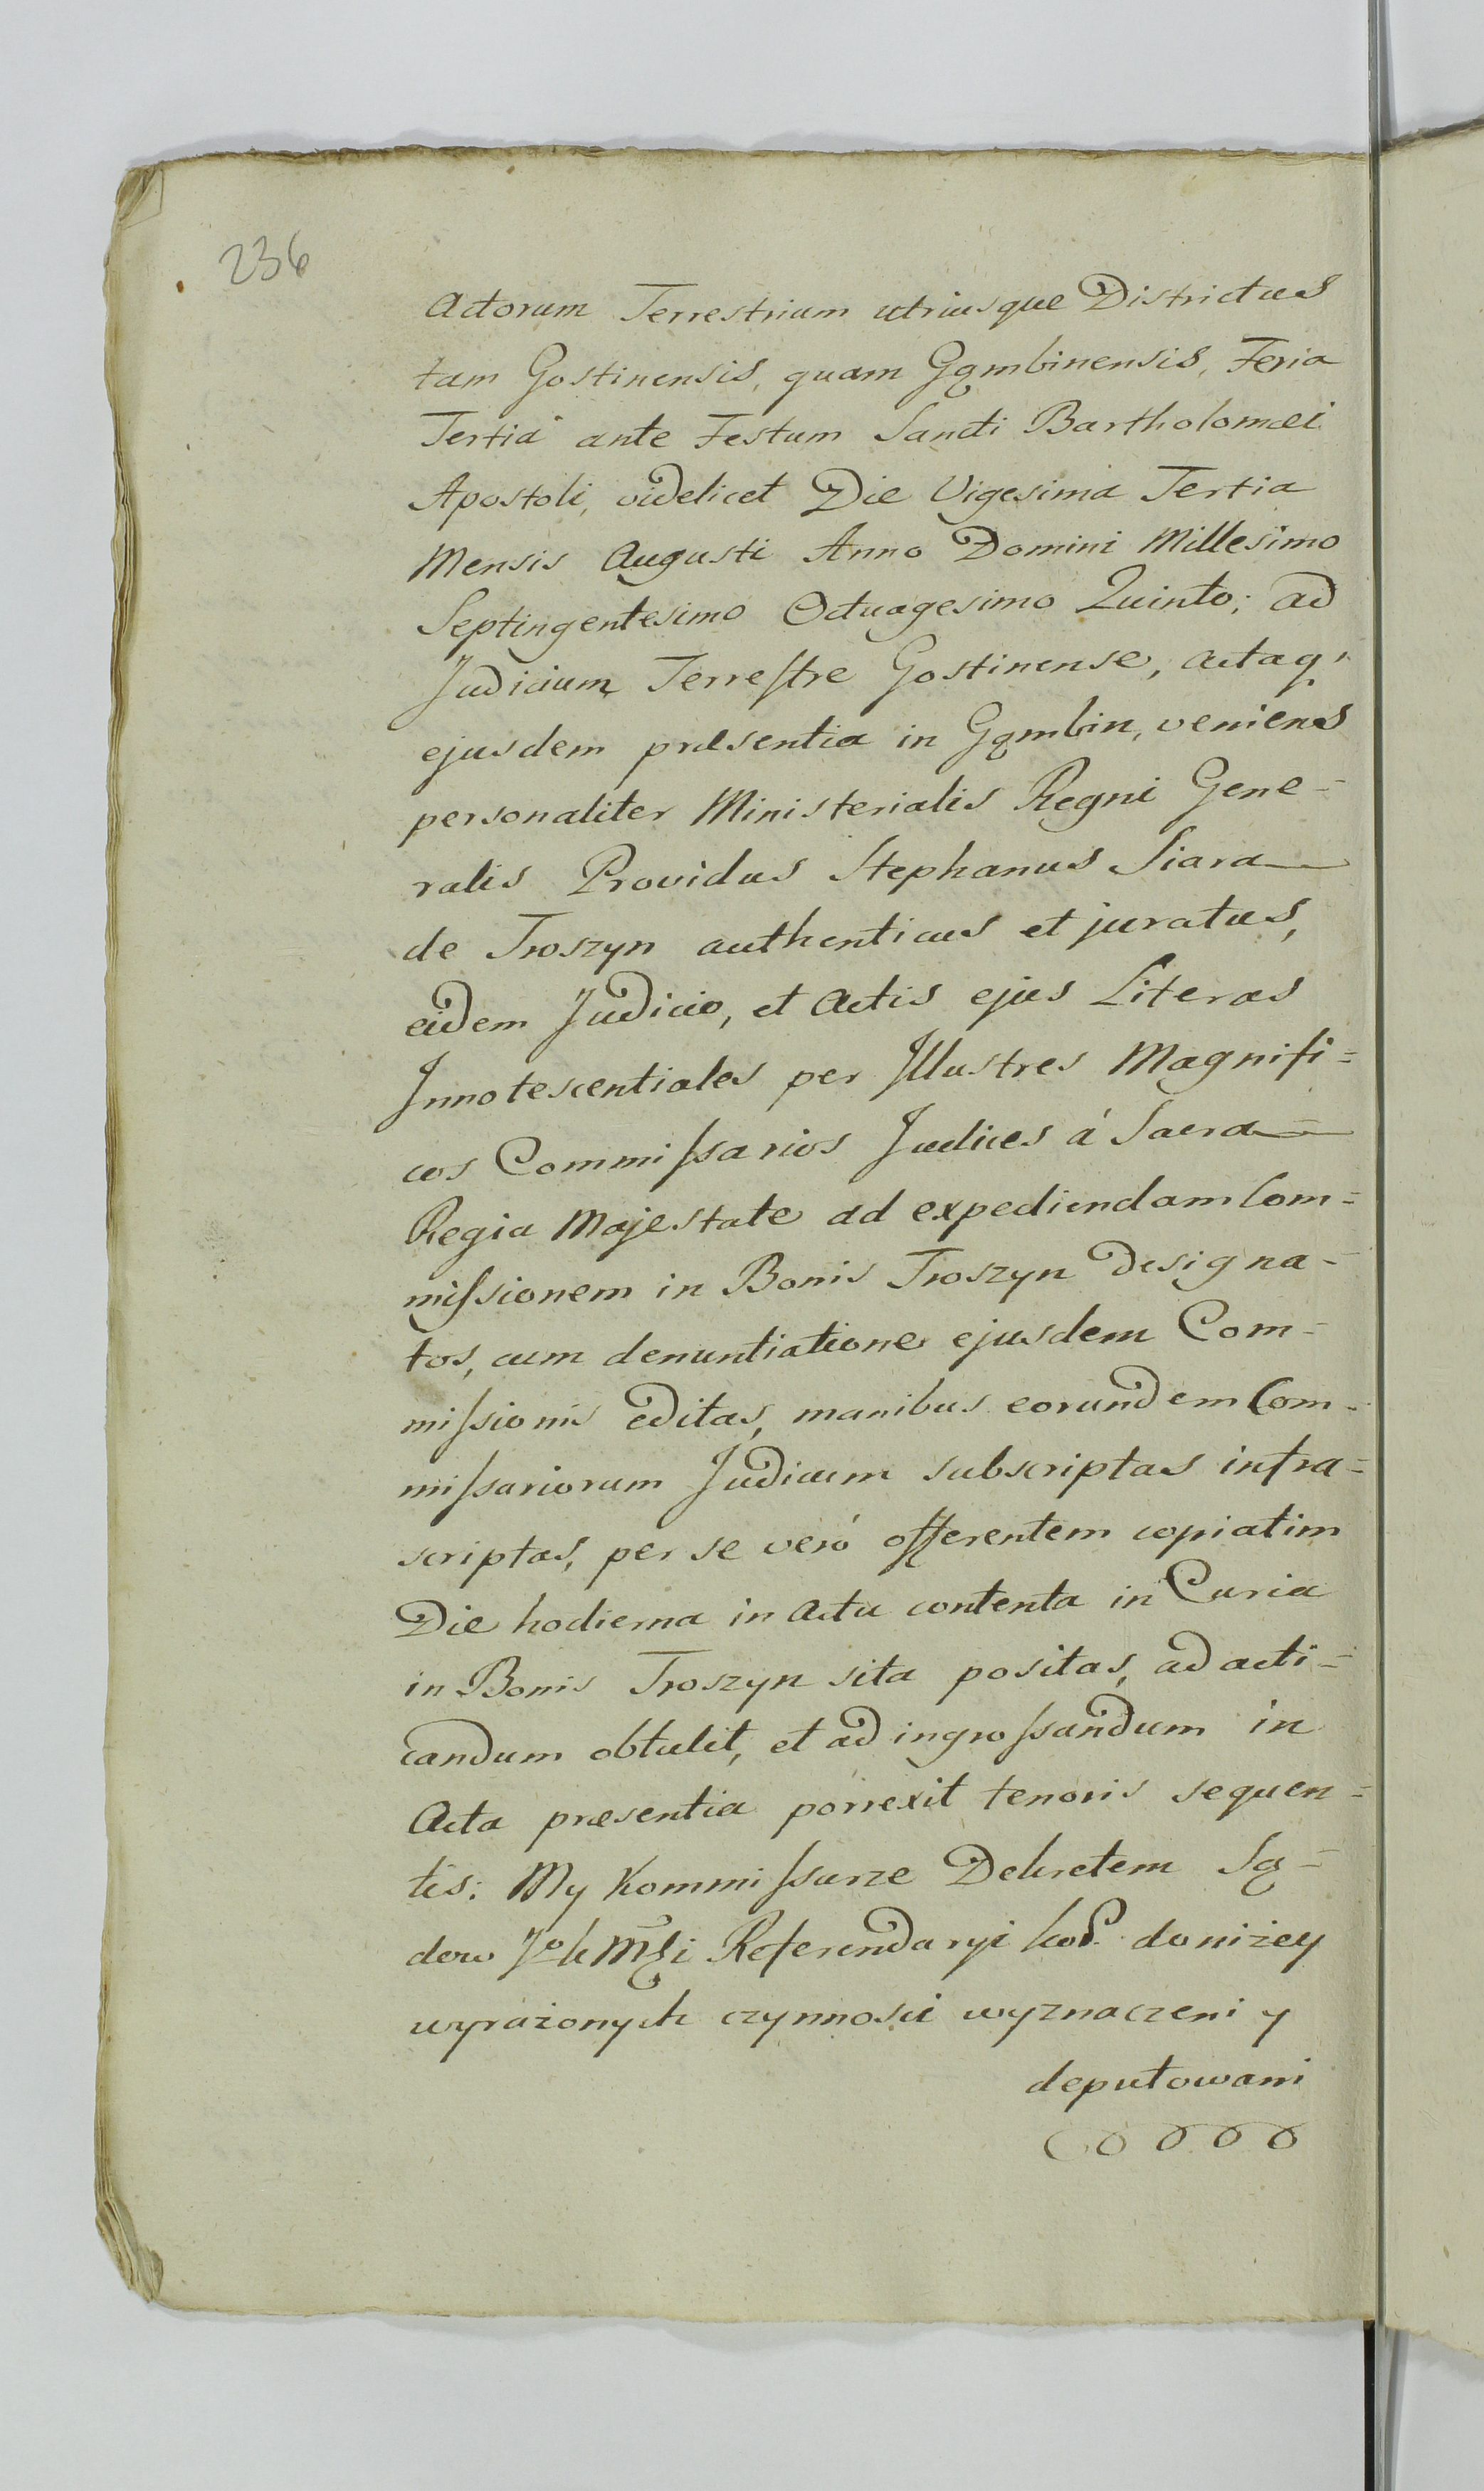 236
Actorum Terrestrium utriusque Districtus
tam Gostinensis, quam Gąmbinensis, Feria
Tertia ante Festum Sancti Bartholomæi
Apostoli, videlicet Die Vigesima Tertia
Mensis Augusti Anno Domini Millesimo
Septingentesimo Octuagesimo Quinto; ad
Judicium Terrestre Gostinense, actaq'
ejusdem præsentia in Gąmbin, veniens
personaliter Ministerialis Regni Gene-
ralis Providus Stephanus Siara
de Troszyn authenticus et juratus,
eidem Judicio, et Actis ejus Literas
Innotescentiales per Illustres Magnifi=
cos Commissarios Judices á Sacra
Regia Majestate ad expediendam Com=
missionem in Bonis Troszyn designa-
tos, cum denuntiatione ejusdem Com-
missionis editas, manibus eorundem Com-
missariorum Judicum subscriptas infra=
scriptas, per se veró offerentem copiatim
Die hodierna in Actu contenta in Curia
in Bonis Troszyn sita positas, ad acti=
candum obtulit, et ad ingrossandum in
Acta præsentia porrexit tenoris sequen=
tis: My Kommissarze Dekretem Są=
dow JoK Mći Referendaryi Kor. do niżey
wyrażonych czynnosci wyznaczeni y
deputowani